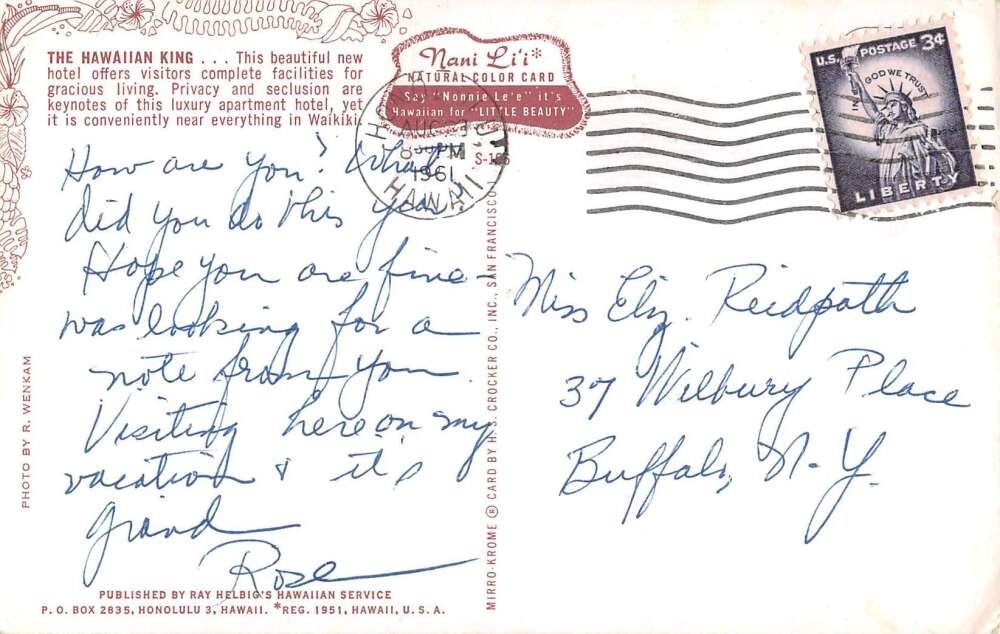 THE HAWAIIAN KING . . . This beautiful new
hotel offers visitors complete facilities for
gracious living. Privacy and seclusion are
keynotes of this luxury apartment hotel, yet
it is conveniently near everything in Waikiki.
Nani Li'i*
NATURAL COLOR CARD
Say "Nonnie Le'e" it's
Hawaiian for "LITTLE BEAUTY"
S-186
AUG
PM
1961
HAWAII
U.S. POSTAGE 3¢
IN GOD WE TRUST
LIBERTY
How are you? What
did you do this year?
Hope you are fine -
was looking for a
note from you.
Visiting here on my
vacation & it's
grand
Rose
Miss Eliz. Reidpath
37 Wilbury Place
Buffalo, N.Y.
PHOTO BY R. WENKAM
MIRRO-KROME ® CARD BY H. S. CROCKER CO., INC., SAN FRANCISCO
PUBLISHED BY RAY HELBIG'S HAWAIIAN SERVICE
P. O. BOX 2835, HONOLULU 3, HAWAII. *REG. 1951, HAWAII, U. S. A.